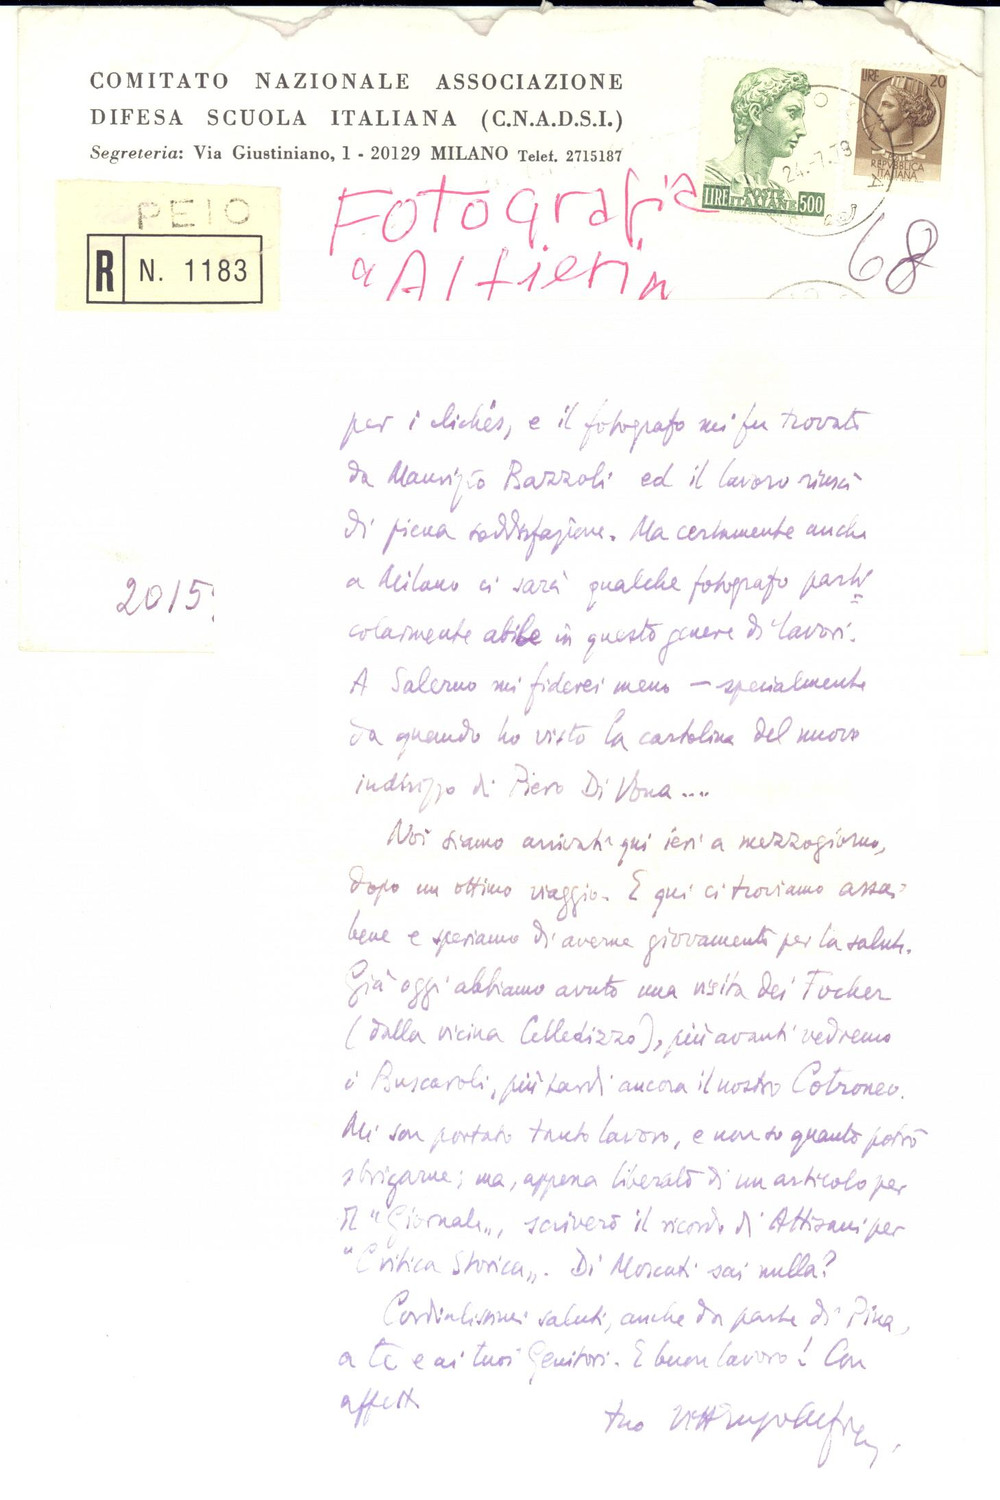 COMITATO NAZIONALE ASSOCIAZIONE
DIFESA SCUOLA ITALIANA (C.N.A.D.S.I.)
Segreteria: Via Giustiniano, 1 - 20129 MILANO Telef. 2715187
LIRE POSTE ITALIANE 500
LIRE 20
POSTE REPUBBLICA ITALIANA
24.-7.79
PEIO
R N. 1183
Fotografia
a Alfierin
68
2015
per i clichés, e il fotografo mi fu trovato
da Maurizio Bazzoli ed il lavoro riuscì
di piena soddisfazione. Ma certamente anche
a Milano ci sarà qualche fotografo parti
colarmente abile in questo genere di lavori.
A Salerno mi fiderei meno — specialmente
da quando ho visto la cartolina del nuovo
indirizzo di Piero Di Vona....
Noi siamo arrivati qui ieri a mezzogiorno,
dopo un ottimo viaggio. E qui ci troviamo assai
bene e speriamo di averne giovamenti per la salute.
Già oggi abbiamo avuto una visita dei Focher
(dalla vicina Celledizzo), più avanti vedremo
i Buscaroli, più tardi ancora il nostro Cotroneo.
Mi son portato tanto lavoro, e non so quanto potrò
sbrigarne; ma, appena liberato di un articolo per
Il "Giornale", scriverò il ricordo di Attisani per
"Critica Storica". Di Moscati sai nulla?
Cordialissimi saluti, anche da parte di Pina,
a te e ai tuoi Genitori. E buon lavoro! Con
affetto
tuo Vittorugo Alfieri,